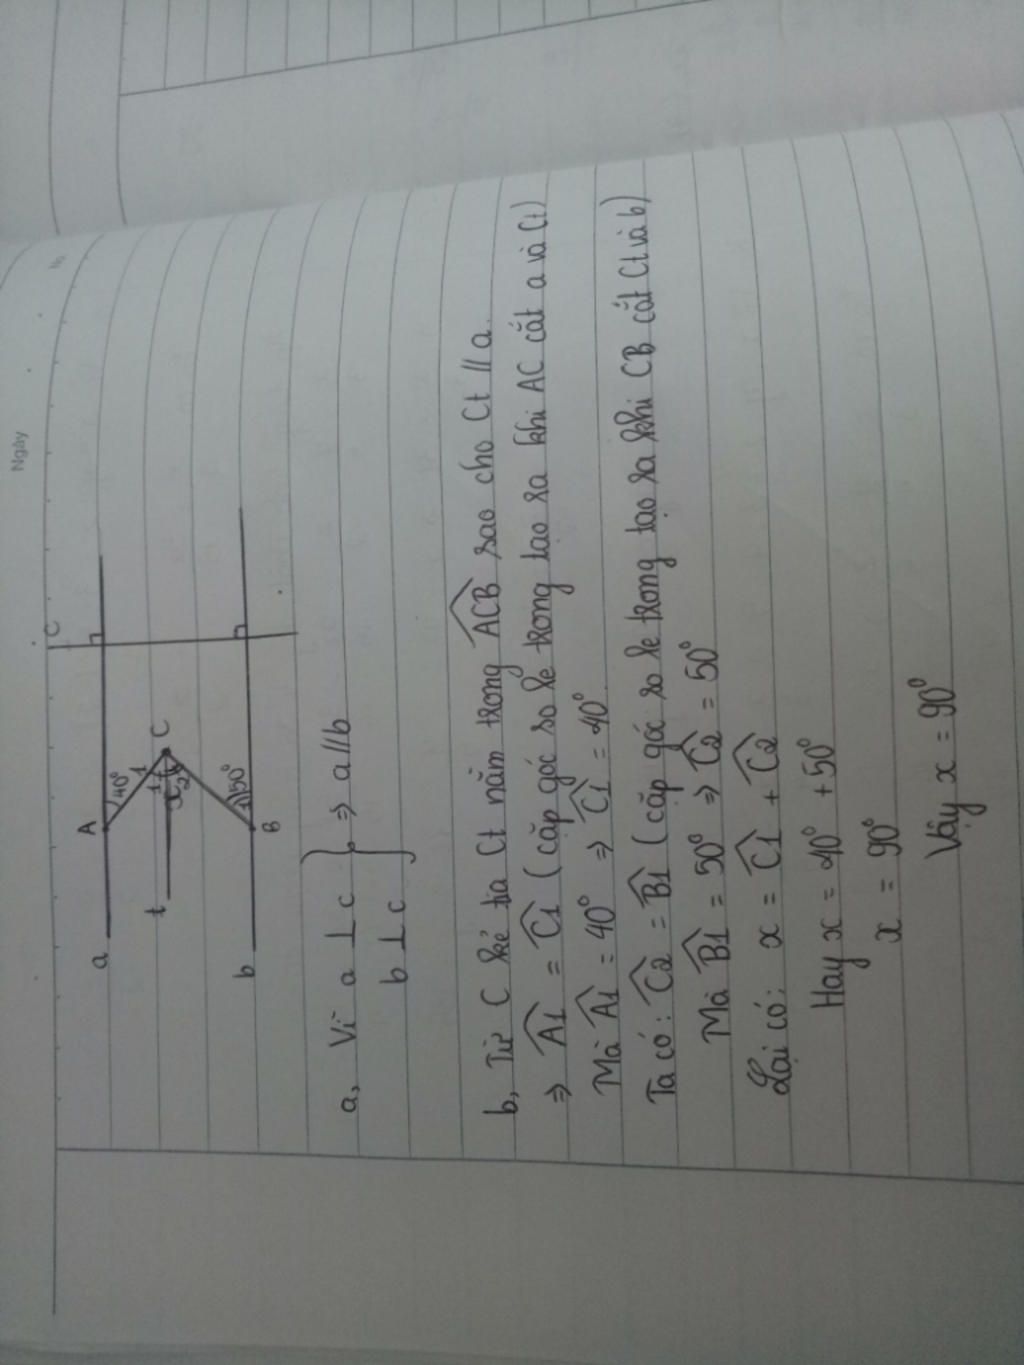 Ngày
No
c
a
A
40°
1
C
t
1
2
x
b
1
50°
B
a, Vì a ⊥ c
b ⊥ c
⇒ a // b
b, Từ C kẻ tia Ct nằm trong \widehat{ACB} sao cho Ct // a.
⇒ \widehat{A1} = \widehat{C1} (cặp góc so le trong tạo ra khi AC cắt a và Ct)
Mà \widehat{A1} = 40° ⇒ \widehat{C1} = 40°
Ta có: \widehat{C2} = \widehat{B1} (cặp góc so le trong tạo ra khi CB cắt Ct và b)
Mà \widehat{B1} = 50° ⇒ \widehat{C2} = 50°
Lại có: x = \widehat{C1} + \widehat{C2}
Hay x = 40° + 50°
x = 90°
Vậy x = 90°